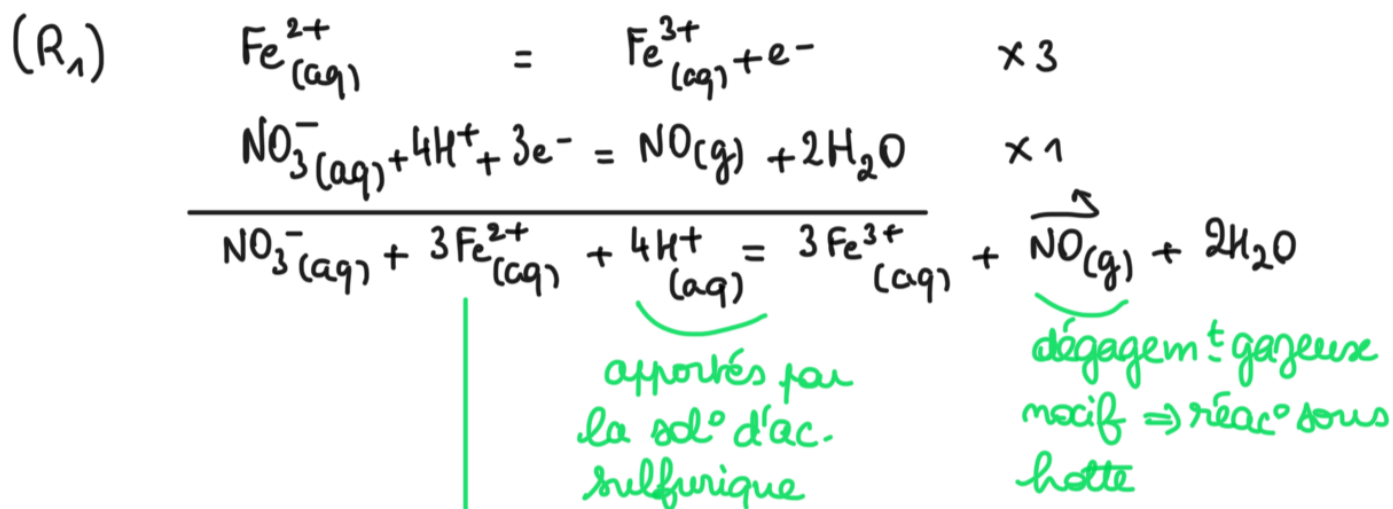 (R₁) Fe²⁺(aq) = Fe³⁺(aq) + e⁻ × 3
NO₃⁻(aq) + 4H⁺ + 3e⁻ = NO(g) + 2H₂O × 1
NO₃⁻(aq) + 3Fe²⁺(aq) + 4H⁺(aq) = 3Fe³⁺(aq) + NO(g) + 2H₂O
apportés par
la sol° d'ac.
sulfurique
dégagem^t gazeuse
nocif ⇒ réac° sous
hotte